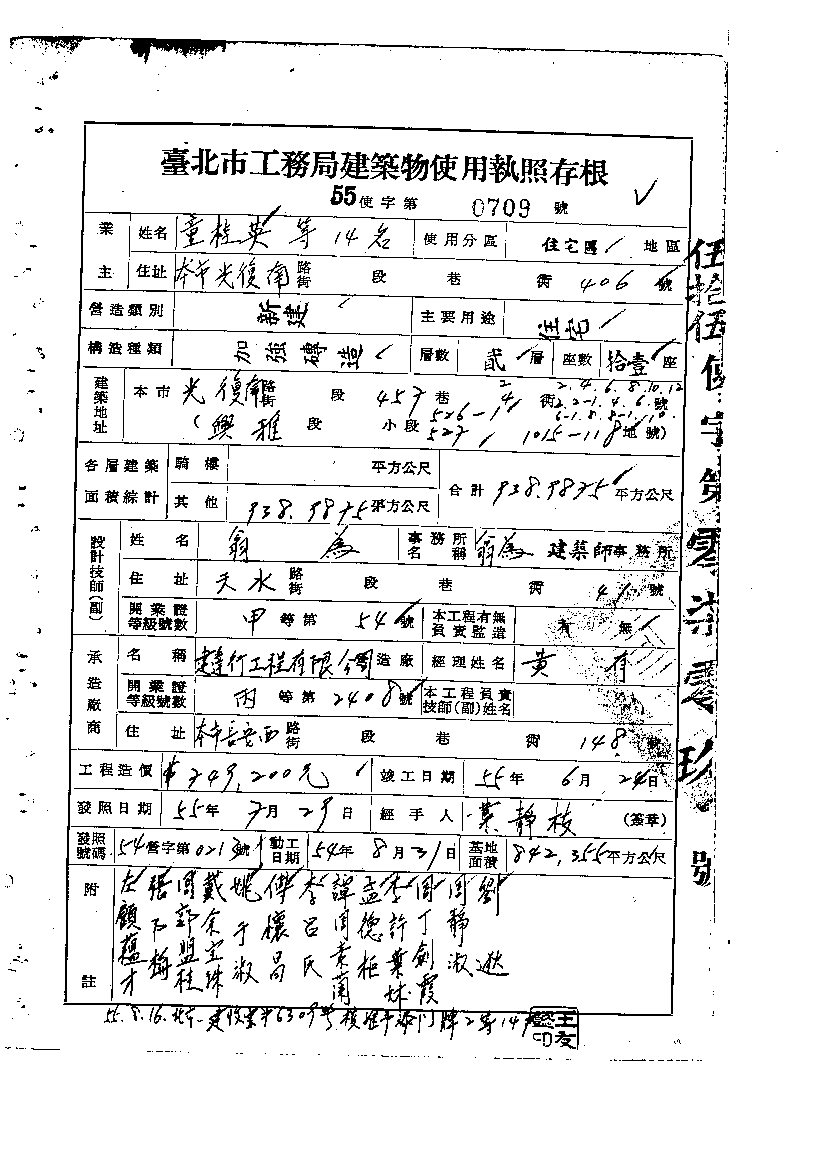 臺北市工務局建築物使用執照存根
55使字第 0709 號
業主 姓名 童桂英等14名 使用分區 住宅區 地區
住址 本市光復南 路街 段 巷 衖 406 號
營造類別 新建 主要用途 住宅
構造種類 加強磚造 層數 貳 層 座數 拾壹 座
建築地址 本市 光復南 路街 段 457 巷 2 4 衖 2.4.6.8.10.12
2.2-1.4.6.號
6-1.8.8-1.10.
(興雅 段 小段 526-1 527 1015-118 地號)
各層建築面積綜計 騎樓 平方公尺 合計 938.9875 平方公尺
其他 938.9875 平方公尺
設計技師(副) 姓名 翁為 事務所名稱 翁為 建築師事務所
住址 天水 路街 段 巷 衖 41 號
開業證等級號數 甲 等第 546 號 本工程有無負責監造 有 無
承造廠商 名稱 建行工程有限公司 造廠 經理姓名 黃有
開業證等級號數 丙 等第 2408 號 本工程負責技師(副)姓名
住址 本市長安西 路街 段 巷 衖 148 號
工程造價 $749,200元 竣工日期 55年 6月 24日
發照日期 55年 7月 29日 經手人 葉靜枝 (簽章)
發照號碼 54營字第0213號 動工日期 54年 8月31日 基地面積 842,355平方公尺
附註
伍拾伍使字第零柒零玖號